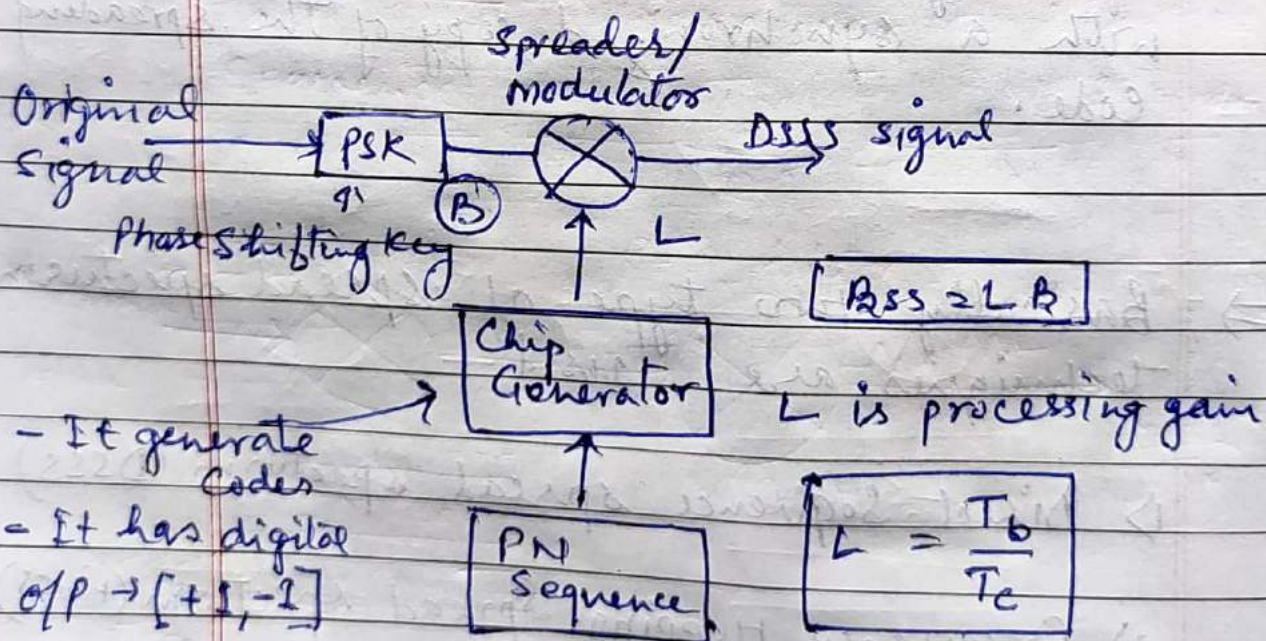 Spreader/
modulator
Original
Signal
PSK
B
DSSS signal
Phase Shifting Key
L
BSS = L B
Chip
Generator
L is processing gain
- It generate
Codes
- It has digital
o/p → [+1, -1]
PN
Sequence
L = Tb/Tc